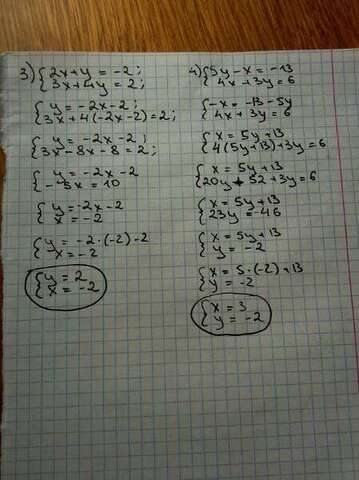 3) { 2x + y = -2;
3x + 4y = 2;
{ y = -2x - 2;
3x + 4(-2x - 2) = 2;
{ y = -2x - 2;
3x - 8x - 8 = 2;
{ y = -2x - 2
-5x = 10
{ y = -2x - 2
x = -2
{ y = -2 · (-2) - 2
x = -2
{ y = 2
x = -2
4) { 5y - x = -13
4x + 3y = 6
{ -x = -13 - 5y
4x + 3y = 6
{ x = 5y + 13
4(5y + 13) + 3y = 6
{ x = 5y + 13
20y + 52 + 3y = 6
{ x = 5y + 13
23y = -46
{ x = 5y + 13
y = -2
{ x = 5 · (-2) + 13
y = -2
{ x = 3
y = -2